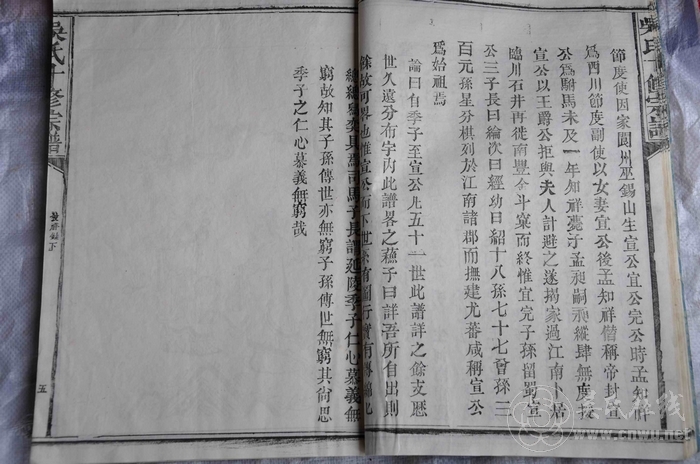 吳氏十修宗譜
節度使因家閬州巫錫山生宣公宜公完公時孟知祥
為西川節度副使以女妻宣公後孟知祥僭稱帝封宣
公為駙馬未及一年知祥薨子孟昶嗣昶縱肆無度
宣公以王爵公拒與夫人計避之遂揭家過江南卜居
臨川石井再徙南豐今斗窠而終惟宜完子孫留蜀宣
公三子長曰綸次曰經幼曰紹十八孫七十七曾孫三
百元孫星分棋列於江南諸郡而撫建尤蕃咸稱宣公
爲始祖焉
論曰自季子至宣公凡五十一世此譜詳之餘支歷
世久遠分布宇內此譜畧之蘓子曰詳吾所自出則
餘故可畧也惟宣公而下世系有圖行實有傳
司馬子長謂延陵季子仁心慕義無
窮故知其子孫傳世亦無窮子孫傳世無窮其尚思
季子之仁心慕義無窮哉
吳氏十修宗譜
五
吴氏在线
www.cnwu.net